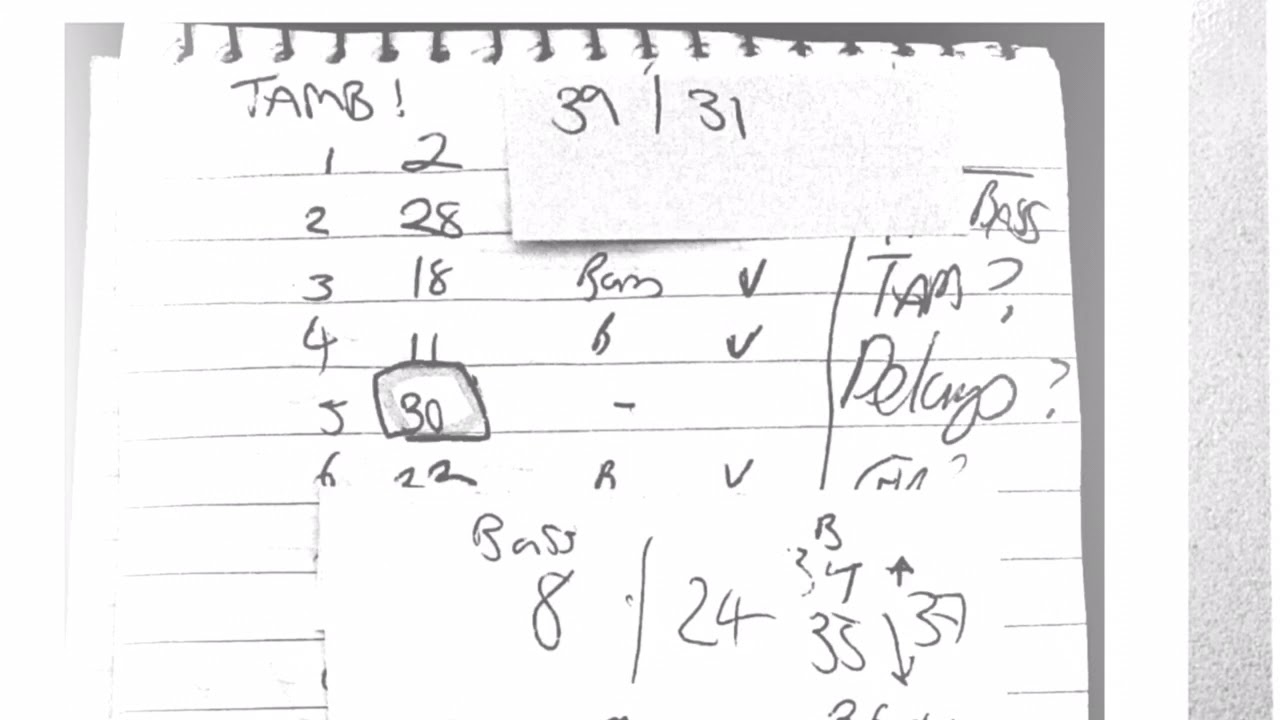 TAMB! 39 / 31
1 2
2 28 BASS
3 18 Bass ✓ TAM?
4 11 B ✓
5 30 - Delays?
6 22 B ✓
Bass B
8 / 24 34 ↑
35 ↓ 37